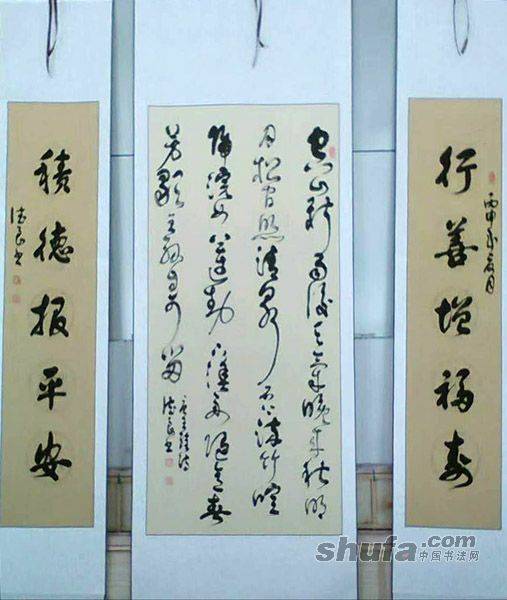 行善增福寿
丙申年
空山新雨後天气晚来秋明
月松间照清泉石上流竹喧
归浣女莲动下渔舟随意春
芳歇王孙自可留
唐王维诗
德良书
積德报平安
德良书
shufa.com
中国书法网